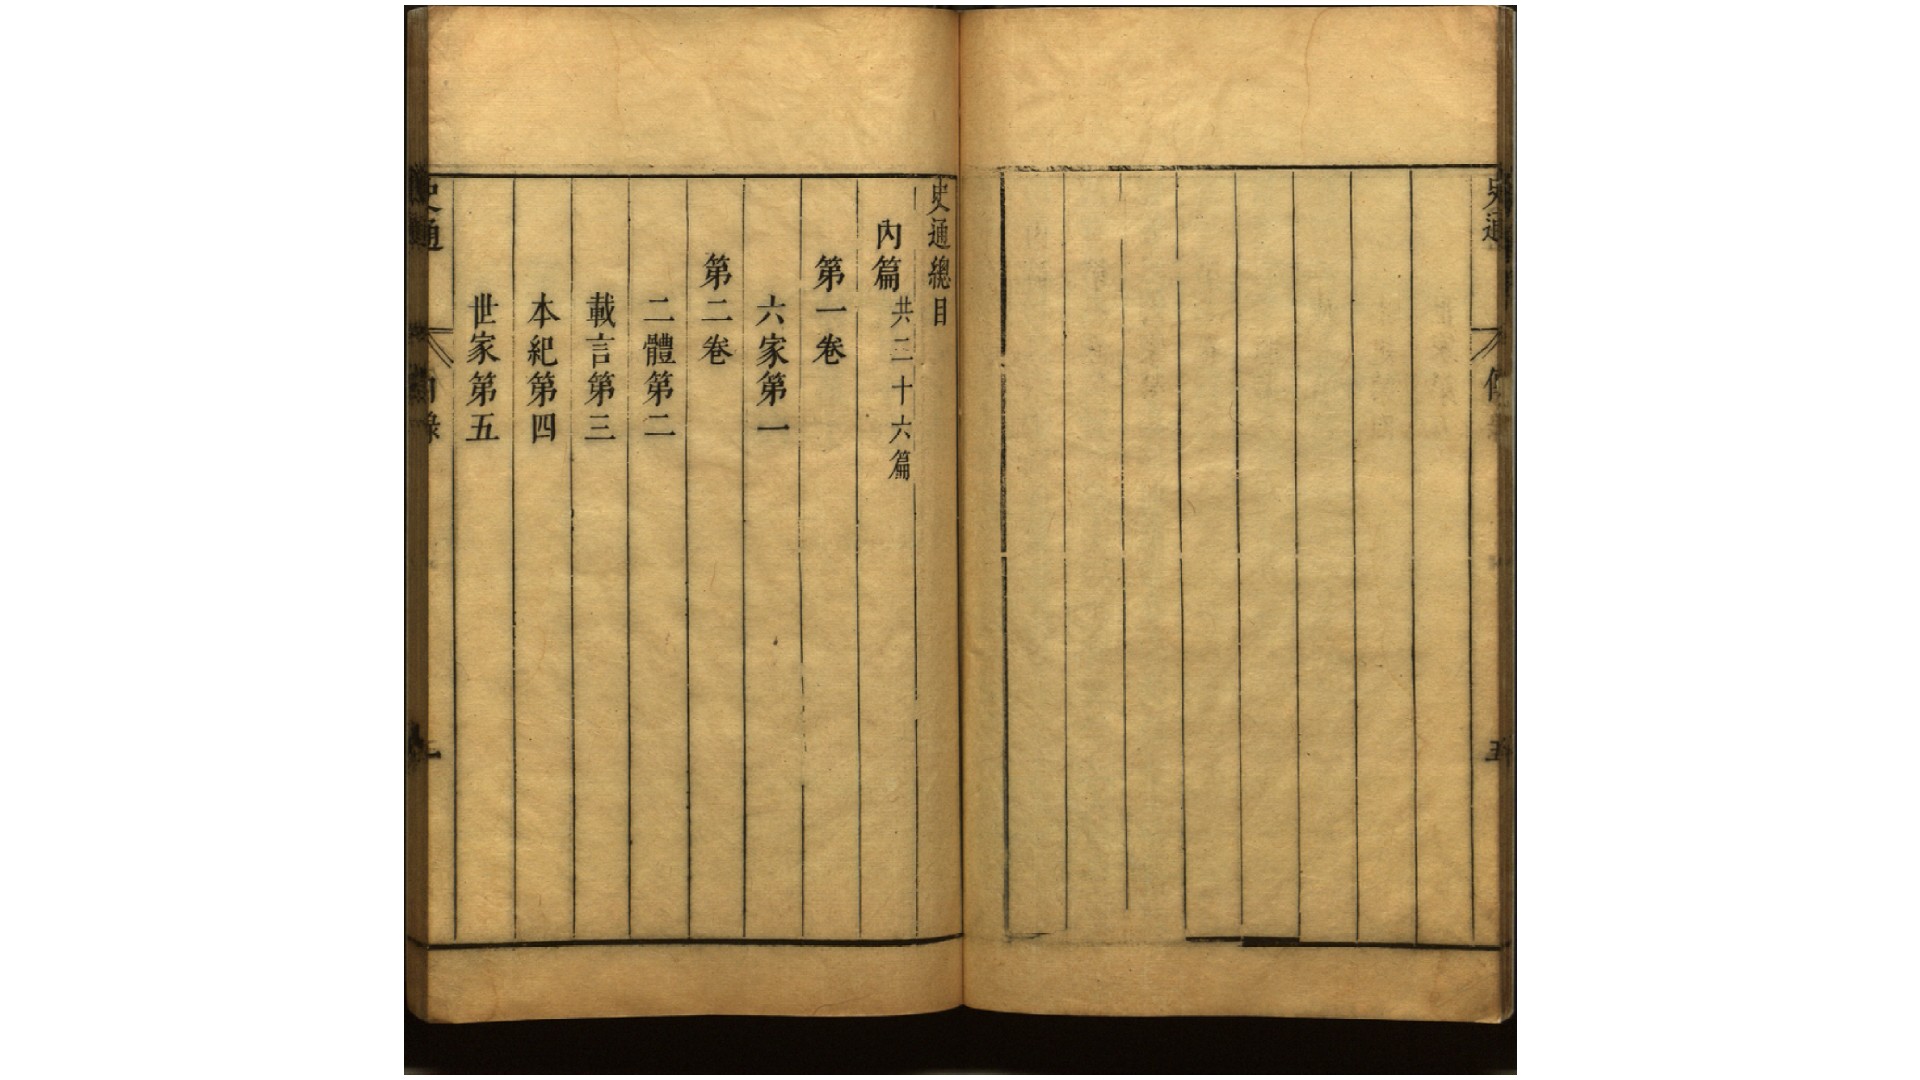 史通
五
史通總目
內篇共三十六篇
第一卷
六家第一
第二卷
二體第二
載言第三
本紀第四
世家第五
史通
目錄
一